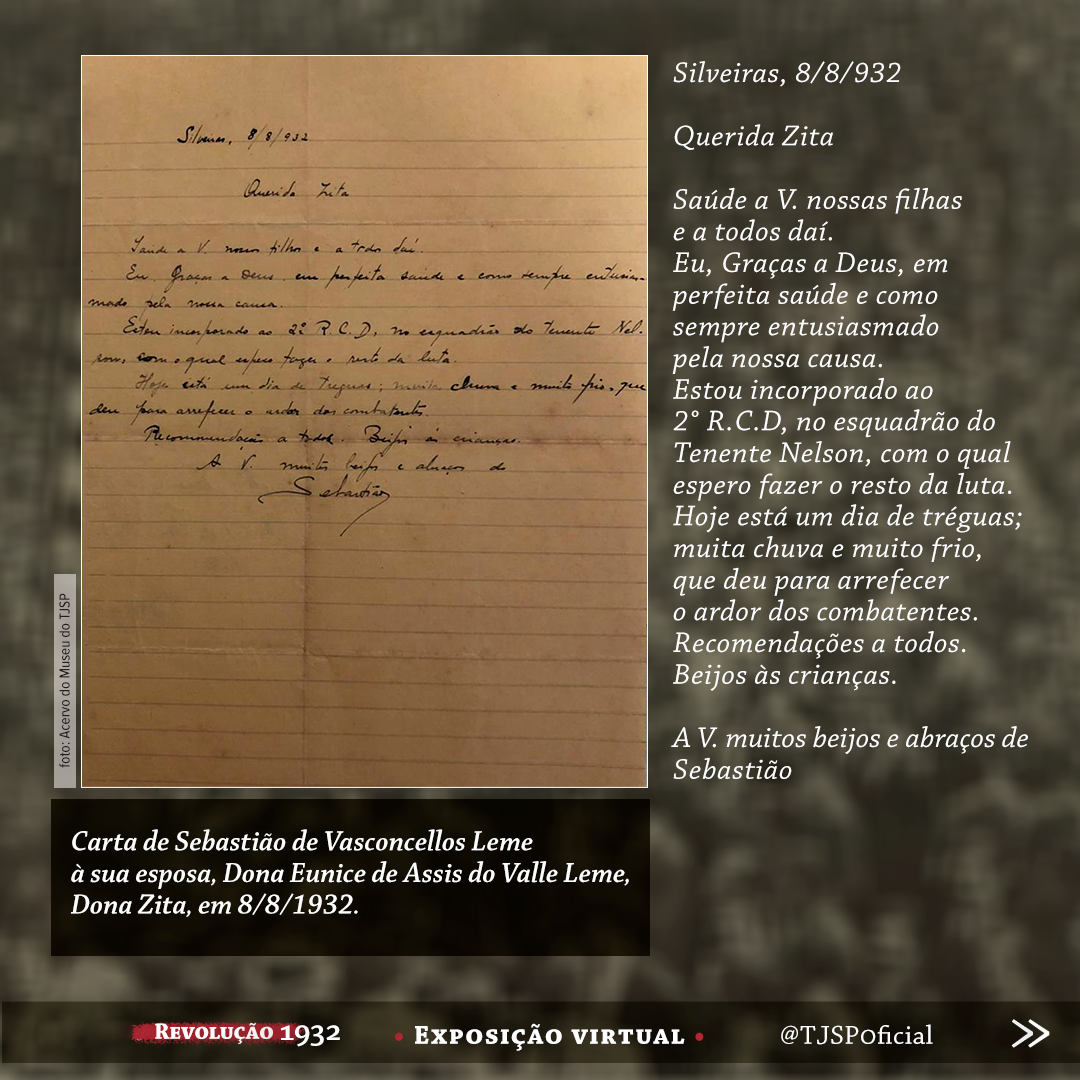 Silveiras, 8/8/932
Querida Zita
Saúde a V. nossas filhas e a todos daí.
Eu, Graças a Deus, em perfeita saúde e como sempre entusias-
mado pela nossa causa.
Estou incorporado ao 2º R.C.D, no esquadrão do Tenente Nel-
son, com o qual espero fazer o resto da luta.
Hoje está um dia de treguas; muita chuva e muito frio, que
deu para arrefecer o ardor dos combatentes.
Recommendações a todos. Beijos ás crianças.
A V. muitos beijos e abraços do
Sebastião
foto: Acervo do Museu do TJSP
Silveiras, 8/8/932
Querida Zita
Saúde a V. nossas filhas
e a todos daí.
Eu, Graças a Deus, em
perfeita saúde e como
sempre entusiasmado
pela nossa causa.
Estou incorporado ao
2° R.C.D, no esquadrão do
Tenente Nelson, com o qual
espero fazer o resto da luta.
Hoje está um dia de tréguas;
muita chuva e muito frio,
que deu para arrefecer
o ardor dos combatentes.
Recomendações a todos.
Beijos às crianças.
A V. muitos beijos e abraços de
Sebastião
Carta de Sebastião de Vasconcellos Leme
à sua esposa, Dona Eunice de Assis do Valle Leme,
Dona Zita, em 8/8/1932.
Revolução 1932
• Exposição virtual •
@TJSPoficial